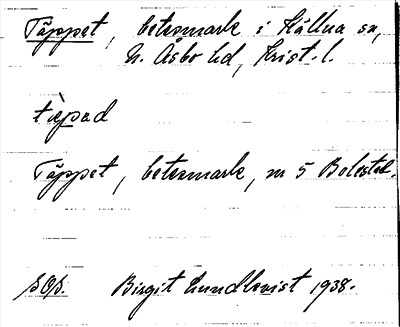 Täppet, betesmark i Källna sn,
N. Åsbo hd, Krist. l.
tæpad
Täppet, betesmark, nr 5 Bolestad.
SOb. Birgit Lundkvist 1938.